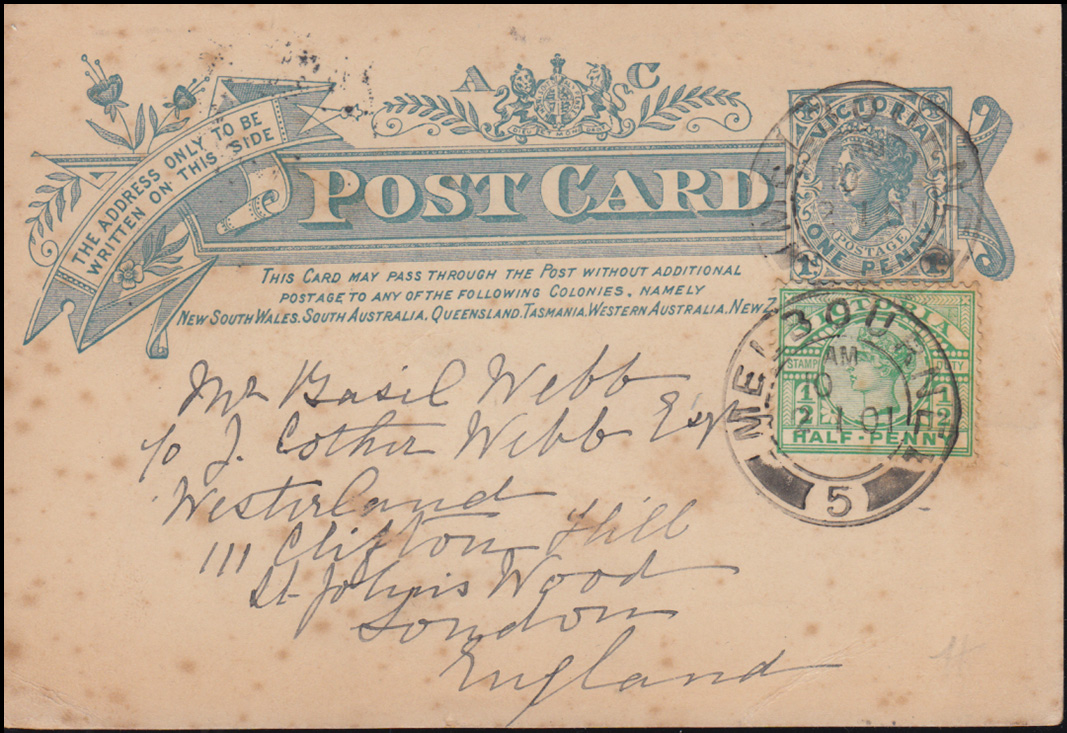 A C
THE ADDRESS ONLY TO BE
WRITTEN ON THIS SIDE
POST CARD
VICTORIA
POSTAGE
ONE PENNY
1D 1D
THIS CARD MAY PASS THROUGH THE POST WITHOUT ADDITIONAL
POSTAGE TO ANY OF THE FOLLOWING COLONIES, NAMELY
NEW SOUTH WALES. SOUTH AUSTRALIA. QUEENSLAND. TASMANIA. WESTERN AUSTRALIA. NEW Z
VICTORIA
STAMP DUTY
1/2 1/2
HALF-PENNY
MELBOURNE
AM
10
2 1 01
5
Mr Basil Webb
c/o J. Cother Webb Esqr
Westerland
111 Clifton Hill
St Johns Wood
London
England